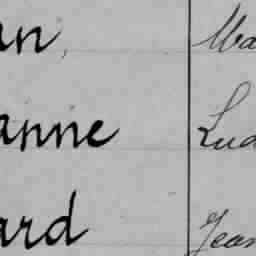 an, Ma
anne Lud
ard Jean